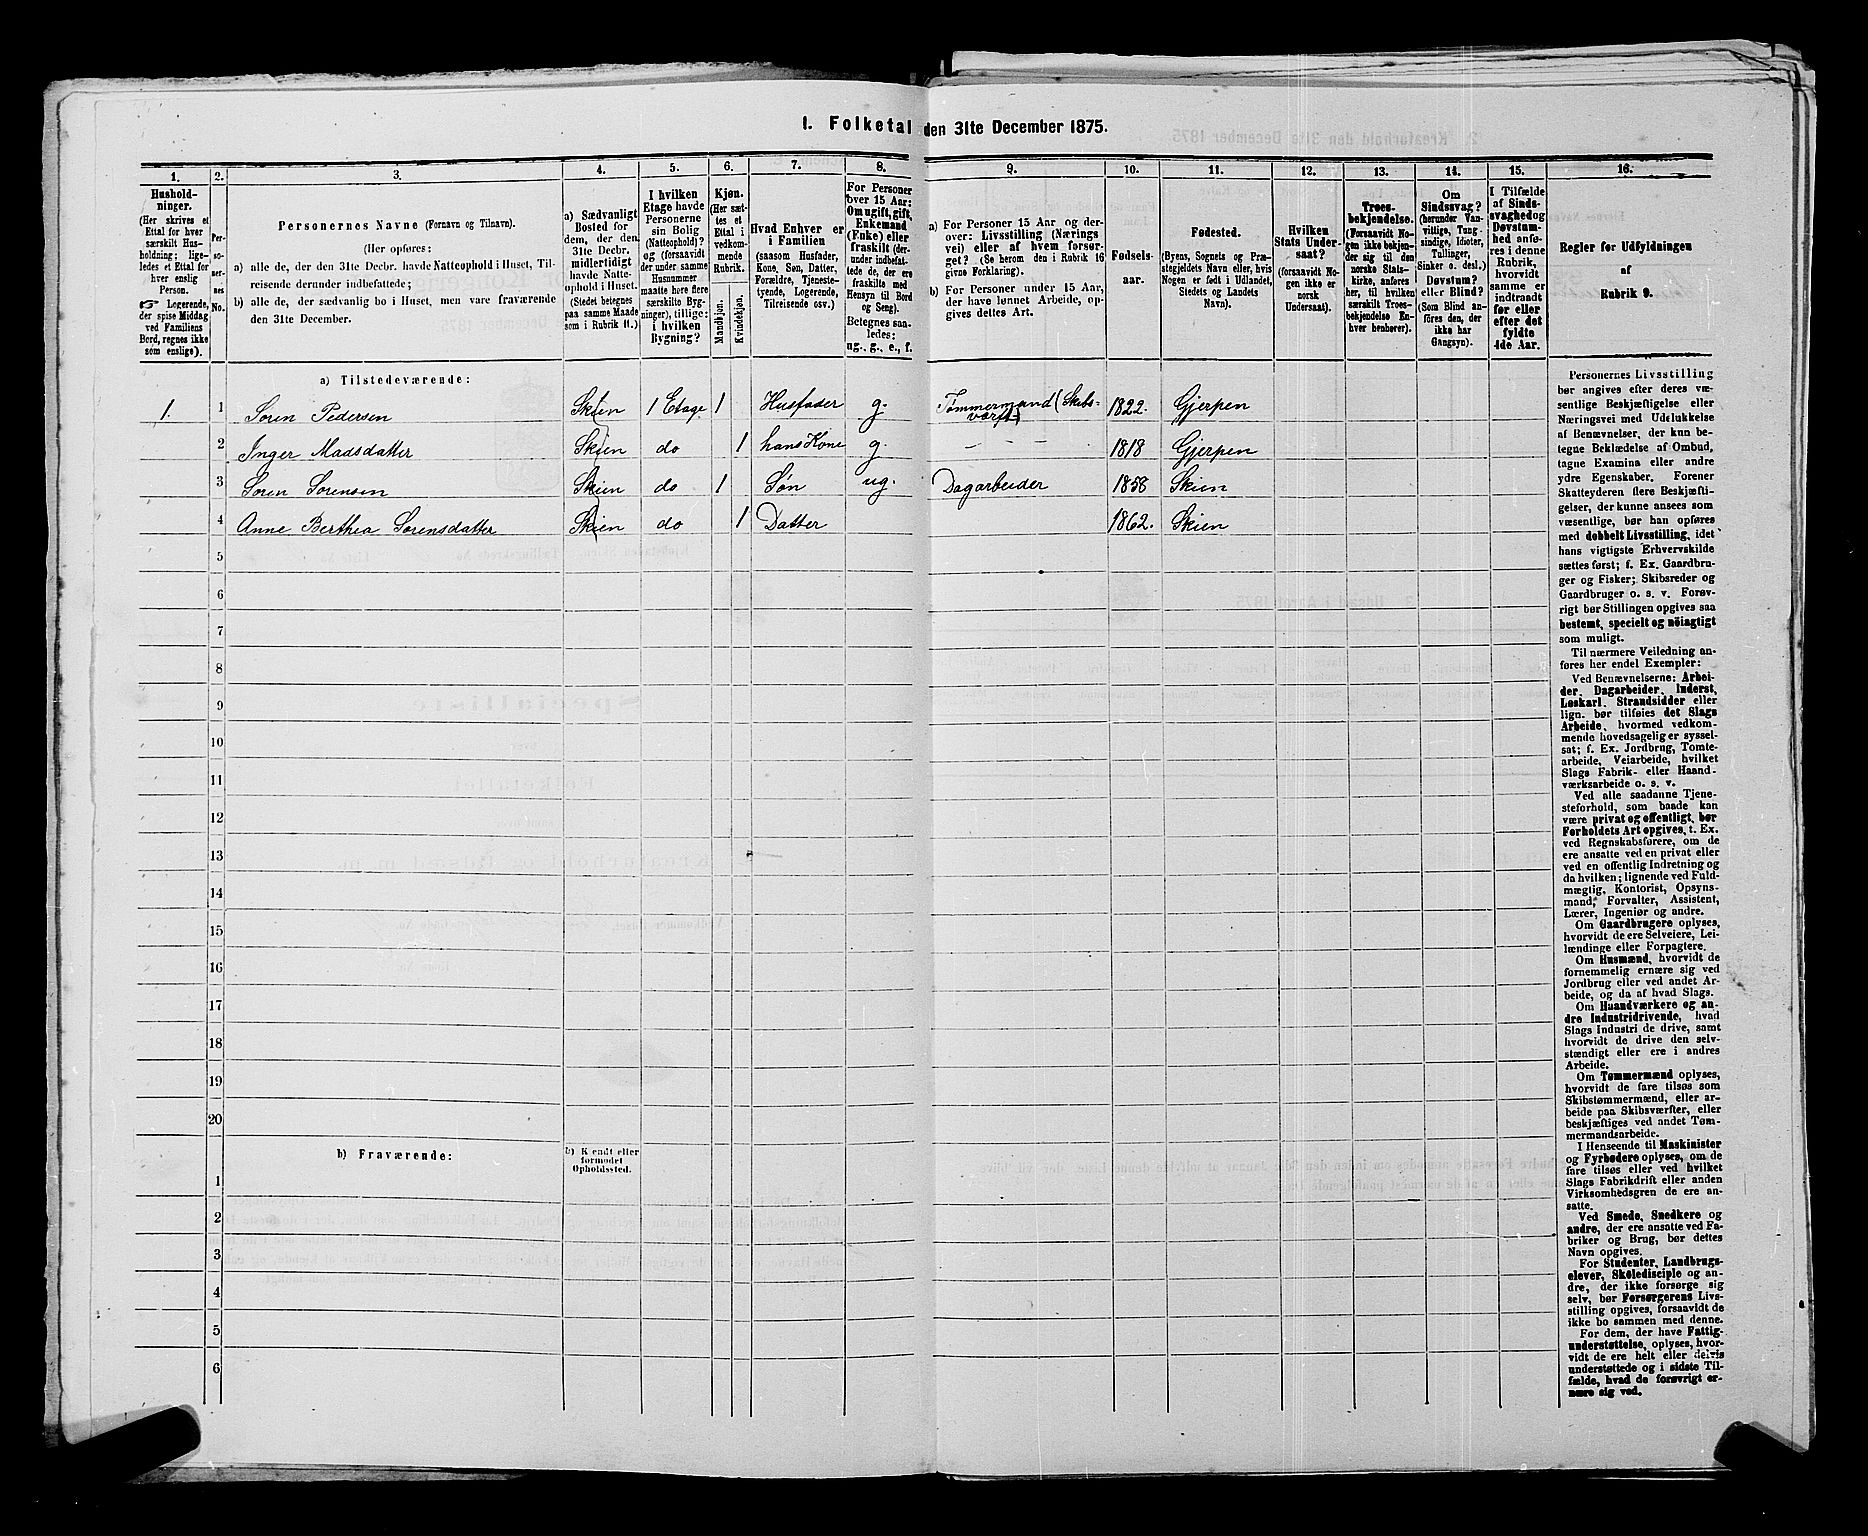 1. Folketal den 31te December 1875.
1.
2.
3.
4.
5.
6.
7.
8.
9.
10.
11.
12.
13.
14.
15.
16.
Hushold-
ninger.
(Her skrives et
Ettal for hver
særskilt Hus-
holdning; lige-
ledes et Ettal for
hver enslig
Person.
☞ Logerende,
der spise Middag
ved Familiens
Bord, regnes ikke
som enslige).
Per-
so-
ner-
nes
No.
Personernes Navne (Fornavn og Tilnavn).
(Her opføres:
a) alle de, der den 31te Decbr. havde Natteophold i Huset, Til-
reisende derunder indbefattede;
b) alle de, der sædvanlig bo i Huset, men vare fraværende
den 31te December.
a) Sædvanligt
Bosted for
dem, der den
31te Decbr.
midlertidigt
havde Natte-
ophold i Huset.
(Stedet betegnes
paa samme Maade
som i Rubrik 11.)
I hvilken
Etage havde
Personerne
sin Bolig
(Natteophold)?
og (forsaavidt
der under samme
Husnummer
maatte høre flere
særskilte Byg-
ninger), tillige:
i hvilken
Bygning?
Kjøn.
(Her sæt-
tes et
Ettal i
vedkom-
mende
Rubrik.
Mandkjøn.
Kvindekjøn.
Hvad Enhver er
i Familien
(saasom Husfader,
Kone, Søn, Datter,
Forældre, Tjeneste-
tyende, Logerende,
Tilreisende osv.)
For Personer
over 15 Aar:
Om ugift, gift,
Enkemand
(Enke) eller
fraskilt (der-
under indbefat-
tede de, der ere
fraskilte med
Hensyn til Bord
og Seng).
Betegnes saa-
ledes:
ug., g., e., f.
a) For Personer 15 Aar og der-
over: Livsstilling (Nærings
vei) eller af hvem forsør-
get? (Se herom den i Rubrik 16
givne Forklaring).
b) For Personer under 15 Aar,
der have lønnet Arbeide, op-
gives dettes Art.
Fødsels-
aar.
Fødested.
(Byens, Sognets og Præ-
stegjeldets Navn eller, hvis
Nogen er født i Udlandet,
Stedets og Landets
Navn).
Hvilken
Stats Under-
saat?
(forsaavidt No-
gen ikke er
norsk
Undersaat).
Troes-
bekjendelse.
(Forsaavidt No-
gen ikke bekjen-
der sig til den
norske Stats-
kirke, anføres
her, til hvilken
særskilt Troes-
bekjendelse En-
hver henhører).
Om
Sindssvag?
(herunder Van-
vittige, Tung-
sindige, Idioter,
Tullinger,
Sinker o. desl.)
Døvstum?
eller Blind?
(Som Blind an-
føres den, der
ikke har
Gangsyn).
I Tilfælde
af Sinds-
svaghed og
Døvstum-
hed anfø-
res i denne
Rubrik,
hvorvidt
samme er
indtraadt
før eller
efter det
fyldte
4de Aar.
Regler for Udfyldningen
af
Rubrik 9.
a) Tilstedeværende:
1. 1 Soren Pedersen Skien 1 Etage 1 Husfader g. Tømmermand (Skibs-
værft) 1822. Gjerpen
2 Inger Madsdatter Skien do 1 hans Kone g. — — — 1818 Gjerpen
3 Soren Sorensen Skien do 1 Søn ug. Dagarbeider 1858 Skien
4 Anne Berthea Sorensdatter Skien do 1 Datter 1862. Skien
5
6
7
8
9
10
11
12
13
14
15
16
17
18
19
20
b) Fraværende:
b) Kjendt eller
formodet
Opholdssted.
1
2
3
4
5
6
Personernes Livsstilling
bør angives efter deres væ-
sentlige Beskjæftigelse eller
Næringsvei med Udelukkelse
af Benævnelser, der kun be-
tegne Beklædelse af Ombud,
tagne Examina eller andre
ydre Egenskaber. Forener
Skatteyderen flere Beskjæfti-
gelser, der kunne ansees som
væsentlige, bør han opføres
med dobbelt Livsstilling, idet
hans vigtigste Erhvervskilde
sættes først; f. Ex. Gaardbru-
ger og Fisker; Skibsreder og
Gaardbruger o. s. v. Forøv-
rigt bør Stillingen opgives saa
bestemt, specielt og nöiagtigt
som muligt.
Til nærmere Veiledning an-
føres her endel Exempler:
Ved Benævnelserne: Arbei-
der, Dagarbeider, Inderst,
Løskarl, Strandsidder eller
lign. bør tilføies det Slags
Arbeide, hvormed vedkom-
mende hovedsagelig er syssel-
sat; f. Ex. Jordbrug, Tomte-
arbeide, Veiarbeide, hvilket
Slags Fabrik- eller Haand-
værksarbeide o. s. v.
Ved alle saadanne Tjene-
steforhold, som baade kan
være privat og offentligt, bør
Forholdets Art opgives, t. Ex.
ved Regnskabsførere, om de
ere ansatte ved en privat eller
ved en offentlig Indretning og
da hvilken; lignende ved Fuld-
mægtig, Kontorist, Opsyns-
mand, Forvalter, Assistent,
Lærer, Ingeniør og andre.
Om Gaardbrugere oplyses,
hvorvidt de ere Selveiere, Lei-
lændinge eller Forpagtere.
Om Husmænd, hvorvidt de
fornemmelig ernære sig ved
Jordbrug eller ved andet Ar-
beide, og da af hvad Slags.
Om Haandværkere og an-
dre Industridrivende, hvad
Slags Industri de drive, samt
hvorvidt de drive den selv-
stændigt eller ere i andres
Arbeide.
Om Tømmermænd oplyses,
hvorvidt de fare tilsøs som
Skibstømmermænd, eller ar-
beide paa Skibsværfter, eller
beskjæftiges ved andet Tøm-
mermandsarbeide.
I Henseende til Maskinister
og Fyrbødere oplyses, om de
fare tilsøs eller ved hvilket
Slags Fabrikdrift eller anden
Virksomhedsgren de ere an-
satte.
Ved Smede, Snedkere og
andre, der ere ansatte ved Fa-
briker og Brug, bør dettes
Navn opgives.
For Studenter, Landbrugs-
elever, Skoledisciple og an-
dre, der ikke forsørge sig
selv, bør Forsørgerens Livs-
stilling opgives, forsaavidt de
ikke bo sammen med denne.
For dem, der have Fattig-
understøttelse, oplyses, hvor-
vidt de ere helt eller delvis
understøttede og i sidste Til-
fælde, hvad de forøvrigt er-
nære sig ved.